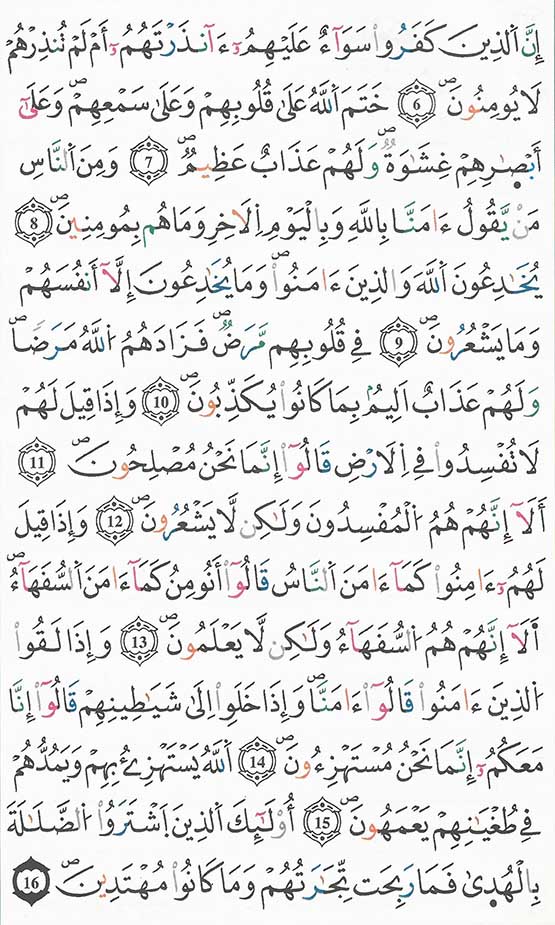 إِنَّ اَ۬لذِينَ كَفَرُواْ سَوَآءٌ عَلَيْهِمُۥٓ ءَآنذَرْتَهُمُۥٓ أَمْ لَمْ تُنذِرْهُمْ
لَا يُومِنُونَۖ 6 خَتَمَ اَ۬للَّهُ عَلَىٰ قُلُوبِهِمْ وَعَلَىٰ سَمْعِهِمْۖ وَعَلَىٰٓ
أَبْصٰ۪رِهِمْ غِشَٰوَةٞۖ وَلَهُمْ عَذَابٌ عَظِيمٞۖ 7 وَمِنَ اَ۬لنَّاسِ
مَنْ يَّقُولُ ءَامَنَّا بِاللَّهِ وَبِالْيَوْمِ اِ۬لَاخِرِ وَمَا هُم بِمُومِنِينَۖ 8
يُخَٰدِعُونَ اَ۬للَّهَ وَالذِينَ ءَامَنُواْۖ وَمَا يُخَٰدِعُونَ إِلَّآ أَنفُسَهُمْ
وَمَا يَشْعُرُونَۖ 9 فِي قُلُوبِهِم مَّرَضٞۖ فَزَادَهُمُ اُ۬للَّهُ مَرَضاٗۖ
وَلَهُمْ عَذَابٌ اَلِيمُۢ بِمَا كَانُواْ يُكَذِّبُونَۖ 10 وَإِذَا قِيلَ لَهُمْ
لَا تُفْسِدُواْ فِي اِ۬لَارْضِ قَالُوٓاْ إِنَّمَا نَحْنُ مُصْلِحُونَۖ 11
أَلَآ إِنَّهُمْ هُمُ اُ۬لْمُفْسِدُونَ وَلَٰكِن لَّا يَشْعُرُونَۖ 12 وَإِذَا قِيلَ
لَهُمُۥٓ ءَامِنُواْ كَمَآ ءَامَنَ اَ۬لنَّاسُ قَالُوٓاْ أَنُومِنُ كَمَآ ءَامَنَ اَ۬لسُّفَهَآءُۖ
أَلَآ إِنَّهُمْ هُمُ اُ۬لسُّفَهَآءُ وَلَٰكِن لَّا يَعْلَمُونَۖ 13 وَإِذَا لَقُواْ
اُ۬لذِينَ ءَامَنُواْ قَالُوٓاْ ءَامَنَّاۖ وَإِذَا خَلَوِاْ اِلَىٰ شَيَٰطِينِهِمْ قَالُوٓاْ إِنَّا
مَعَكُمُۥٓ إِنَّمَا نَحْنُ مُسْتَهْزِءُونَۖ 14 اَ۬للَّهُ يَسْتَهْزِۓُ بِهِمْ وَيَمُدُّهُمْ
فِي طُغْيَٰنِهِمْ يَعْمَهُونَۖ 15 أُوْلَٰٓئِكَ اَ۬لذِينَ اَ۪شْتَرَوُاْ اُ۬لضَّلَٰلَةَ
بِالْهُد۪ىٰ فَمَا رَبِحَت تِّجَٰرَتُهُمْ وَمَا كَانُواْ مُهْتَدِينَۖ 16